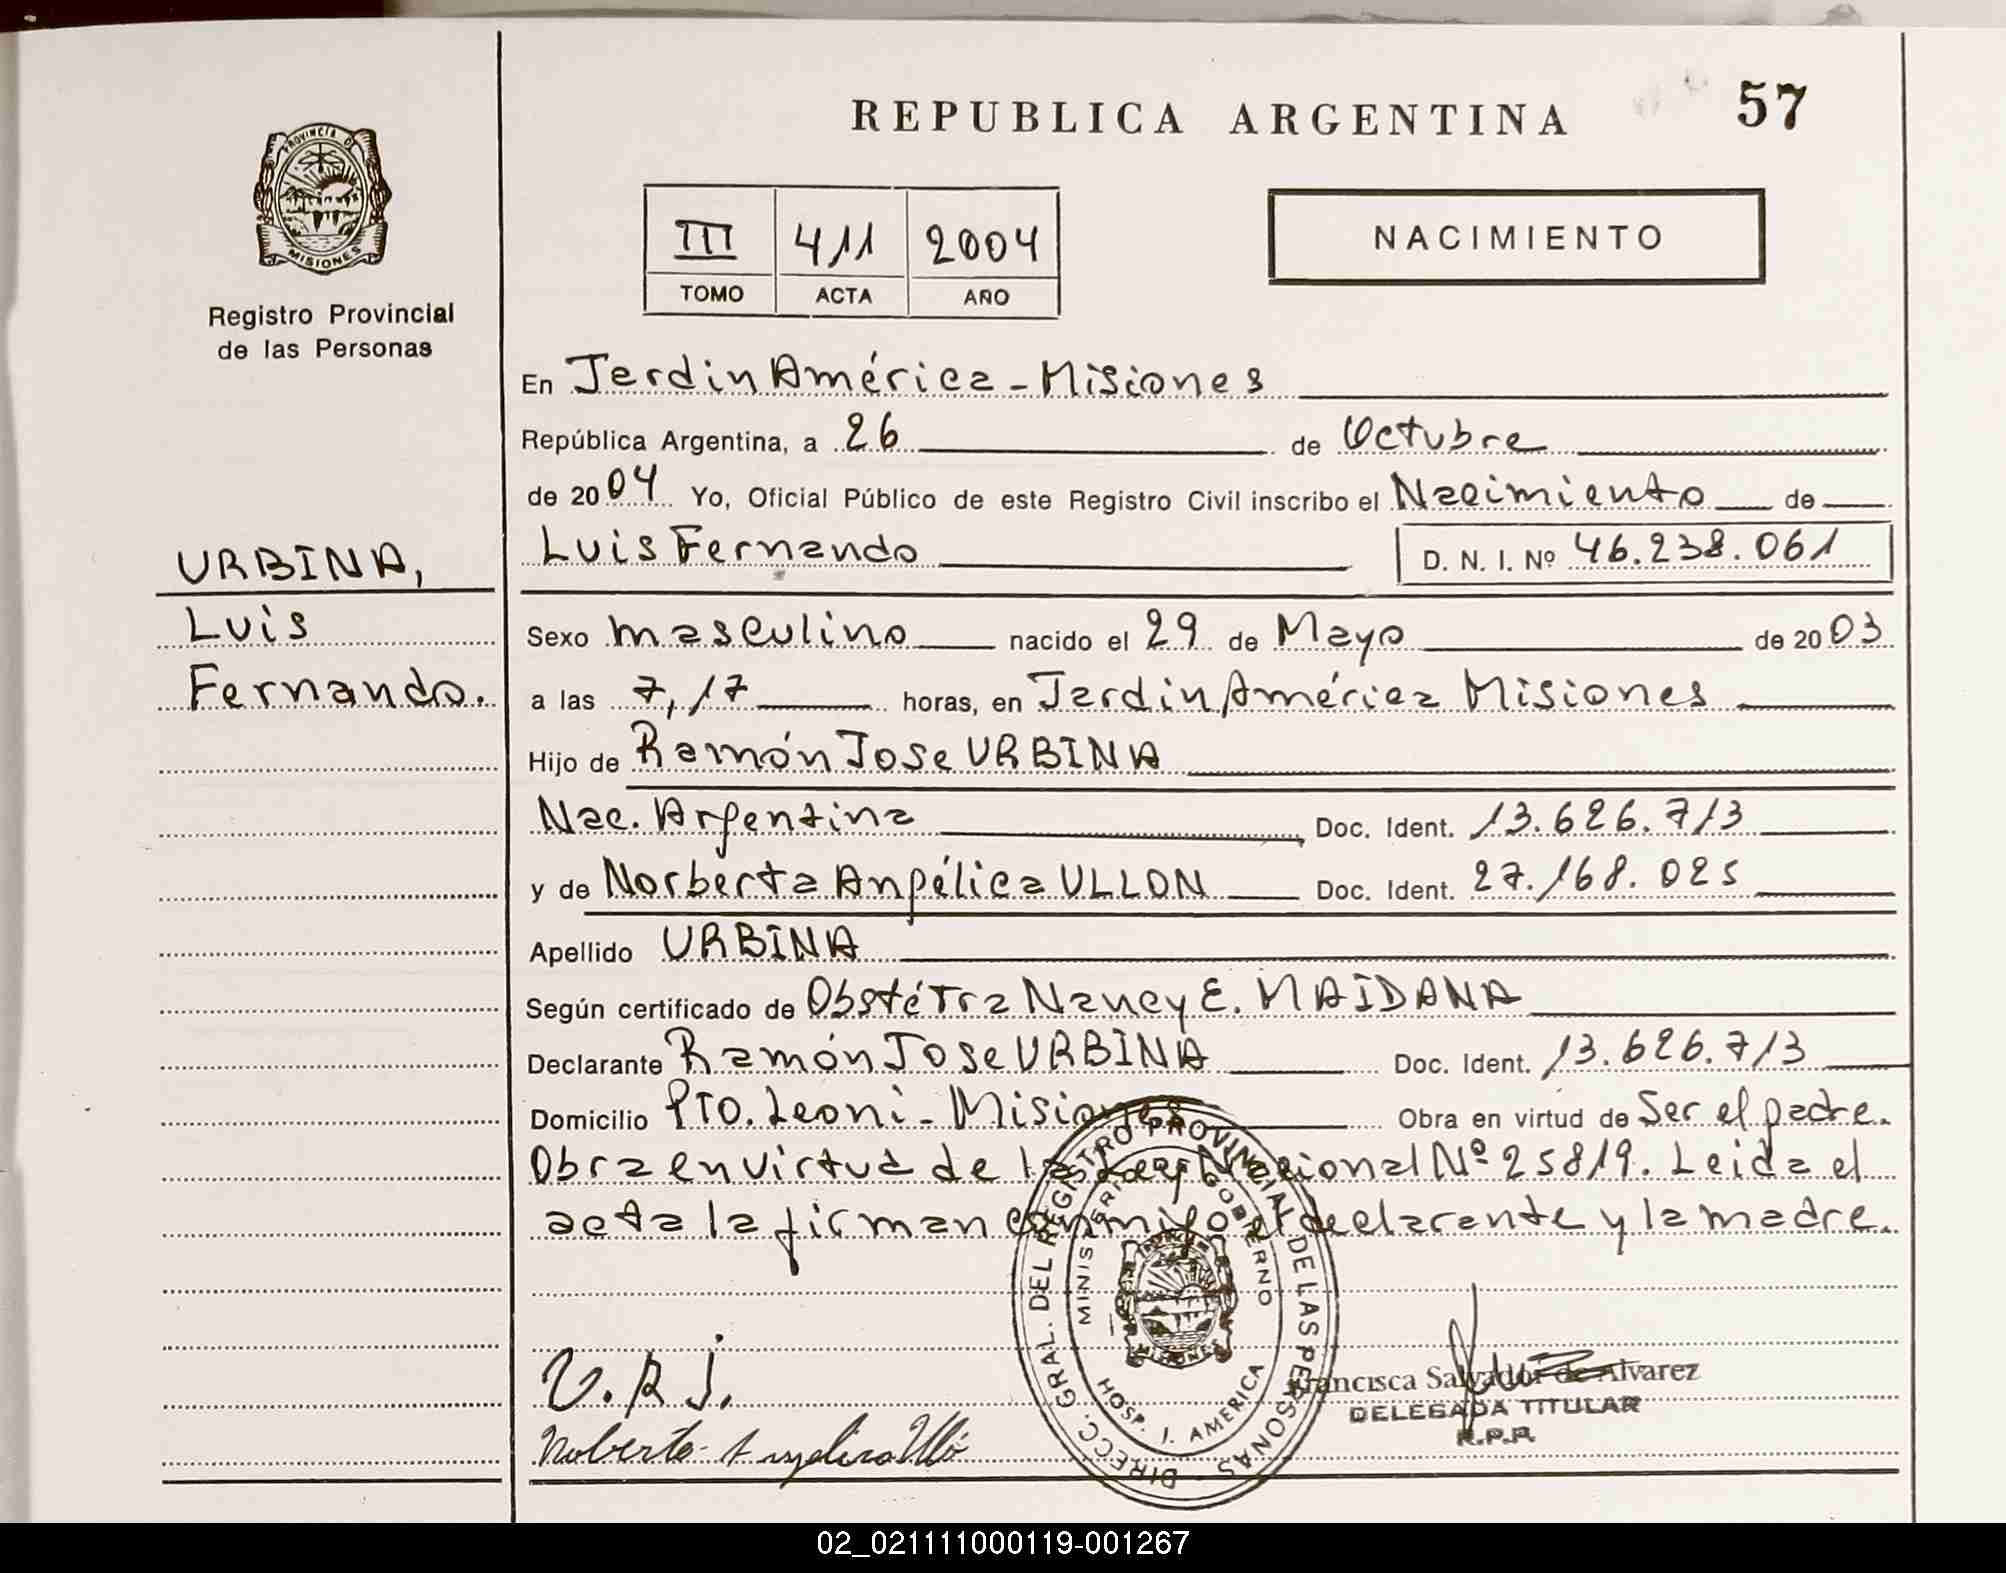 REPUBLICA ARGENTINA
57
PROVINCIA DE
MISIONES
Registro Provincial
de las Personas
III 411 2004
TOMO ACTA AÑO
NACIMIENTO
URBINA,
Luis
Fernando.
En Jardin América - Misiones
República Argentina, a 26 de Octubre
de 2004 Yo, Oficial Público de este Registro Civil inscribo el Nacimiento de
Luis Fernando D. N. I. Nº 46.238.061
Sexo masculino nacido el 29 de Mayo de 2003
a las 7,17 horas, en Jardin América Misiones
Hijo de Ramón Jose URBINA
Nac. Argentina Doc. Ident. 13.626.713
y de Norberta Angélica ULLON Doc. Ident. 27.168.025
Apellido URBINA
Según certificado de Obstétra Nancy E. MAIDANA
Declarante Ramón Jose URBINA Doc. Ident. 13.626.713
Domicilio Pto. Leoni - Misiones Obra en virtud de Ser el padre.
Obra en virtud de la Ley Nacional Nº 25819. Leida el
acta la firman conmigo el declarante y la madre.
DIRECC. GRAL. DEL REGISTRO PROVINCIAL DE LAS PERSONAS
MINISTERIO DE GOBIERNO
HOSP. J. AMERICA
MISIONES
U.R J.
Francisca Salvador de Alvarez
DELEGADA TITULAR
R.P.P.
Norberta Angelica Ulló
02_021111000119-001267